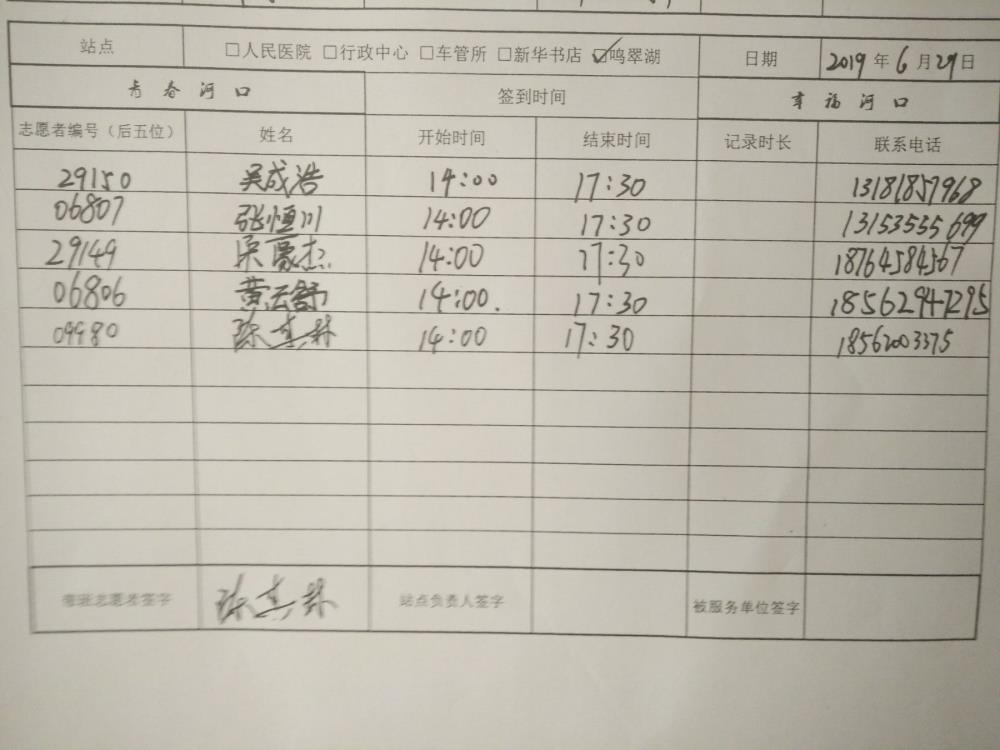 站点 □人民医院 □行政中心 □车管所 □新华书店 ☑鸣翠湖 日期 2019年6月29日
青春河口 签到时间 幸福河口
志愿者编号（后五位） 姓名 开始时间 结束时间 记录时长 联系电话
29150 吴成浩 14:00 17:30 13181857968
06807 张恒川 14:00 17:30 13153555699
29149 宋豪杰 14:00 17:30 18764584567
06806 黄云舒 14:00. 17:30 18562947295
09980 14:00 17:30 18562003375
志愿者签字 站点负责人签字 被服务单位签字